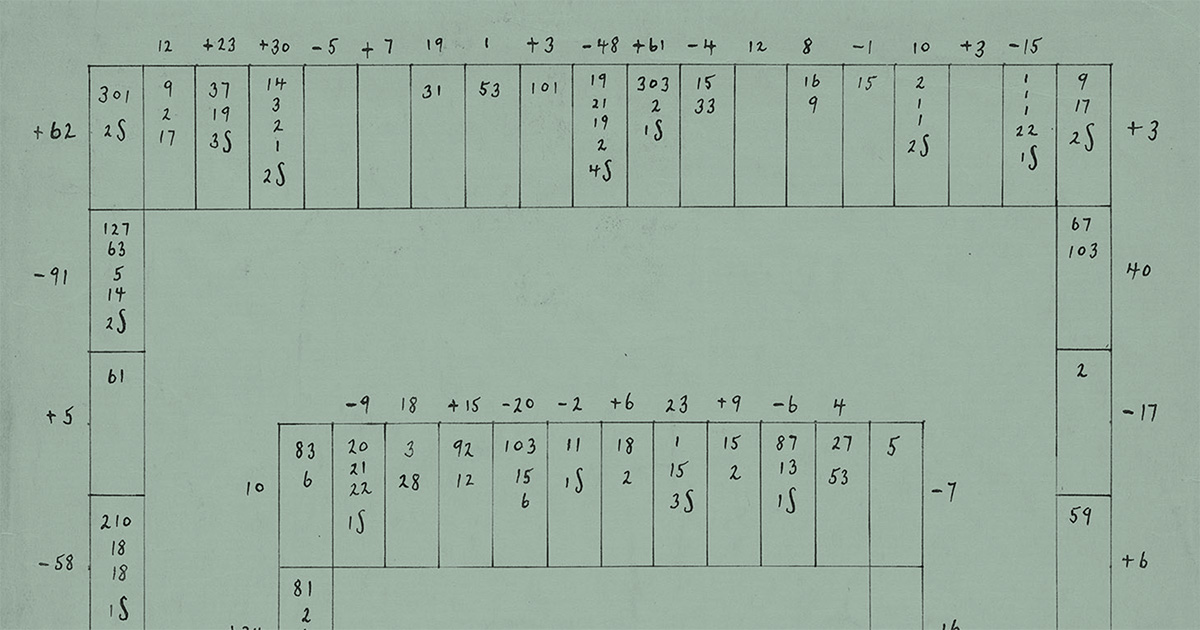 12 +23 +30 -5 +7 19 1 +3 -48 +61 -4 12 8 -1 10 +3 -15
+62
301
2S
9
2
17
37
19
3S
14
3
2
1
2S
31
53
101
19
21
19
2
4S
303
2
1S
15
33
16
9
15
2
1
1
2S
1
1
1
22
1S
9
17
2S
+3
-91
127
63
5
14
2S
67
103
40
+5
61
2
-17
-9 18 +15 -20 -2 +6 23 +9 -6 4
10
83
6
20
21
22
1S
3
28
92
12
103
15
6
11
1S
18
2
1
15
3S
15
2
87
13
1S
27
53
5
-7
-58
210
18
18
1S
59
+6
81
2